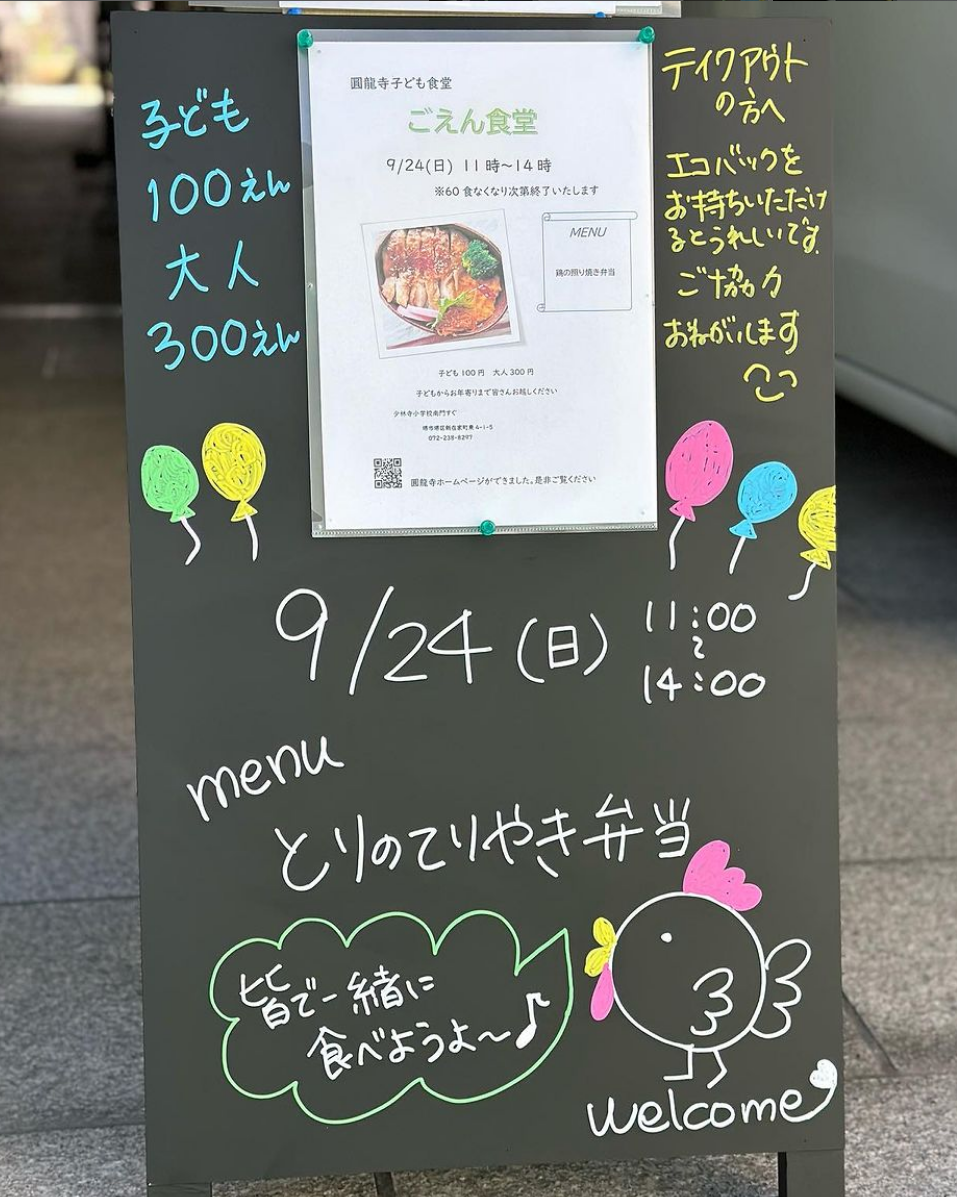 子ども
100えん
大人
300えん
圓龍寺子ども食堂
ごえん食堂
9/24(日) 11時～14時
※60食なくなり次第終了いたします
MENU
鶏の照り焼き弁当
子ども100円 大人300円
子どもからお年寄りまで皆さんお越しください
少林寺小学校南門すぐ
堺市堺区新在家町東4-1-5
072-238-8297
圓龍寺ホームページができました。是非ご覧ください
テイクアウト
の方へ
エコバックを
お持ちいただけ
るとうれしいです。
ご協力
おねがいします
9/24(日)
11:00
～
14:00
menu
とりのてりやき弁当
皆で一緒に
食べようよ～♪
welcome